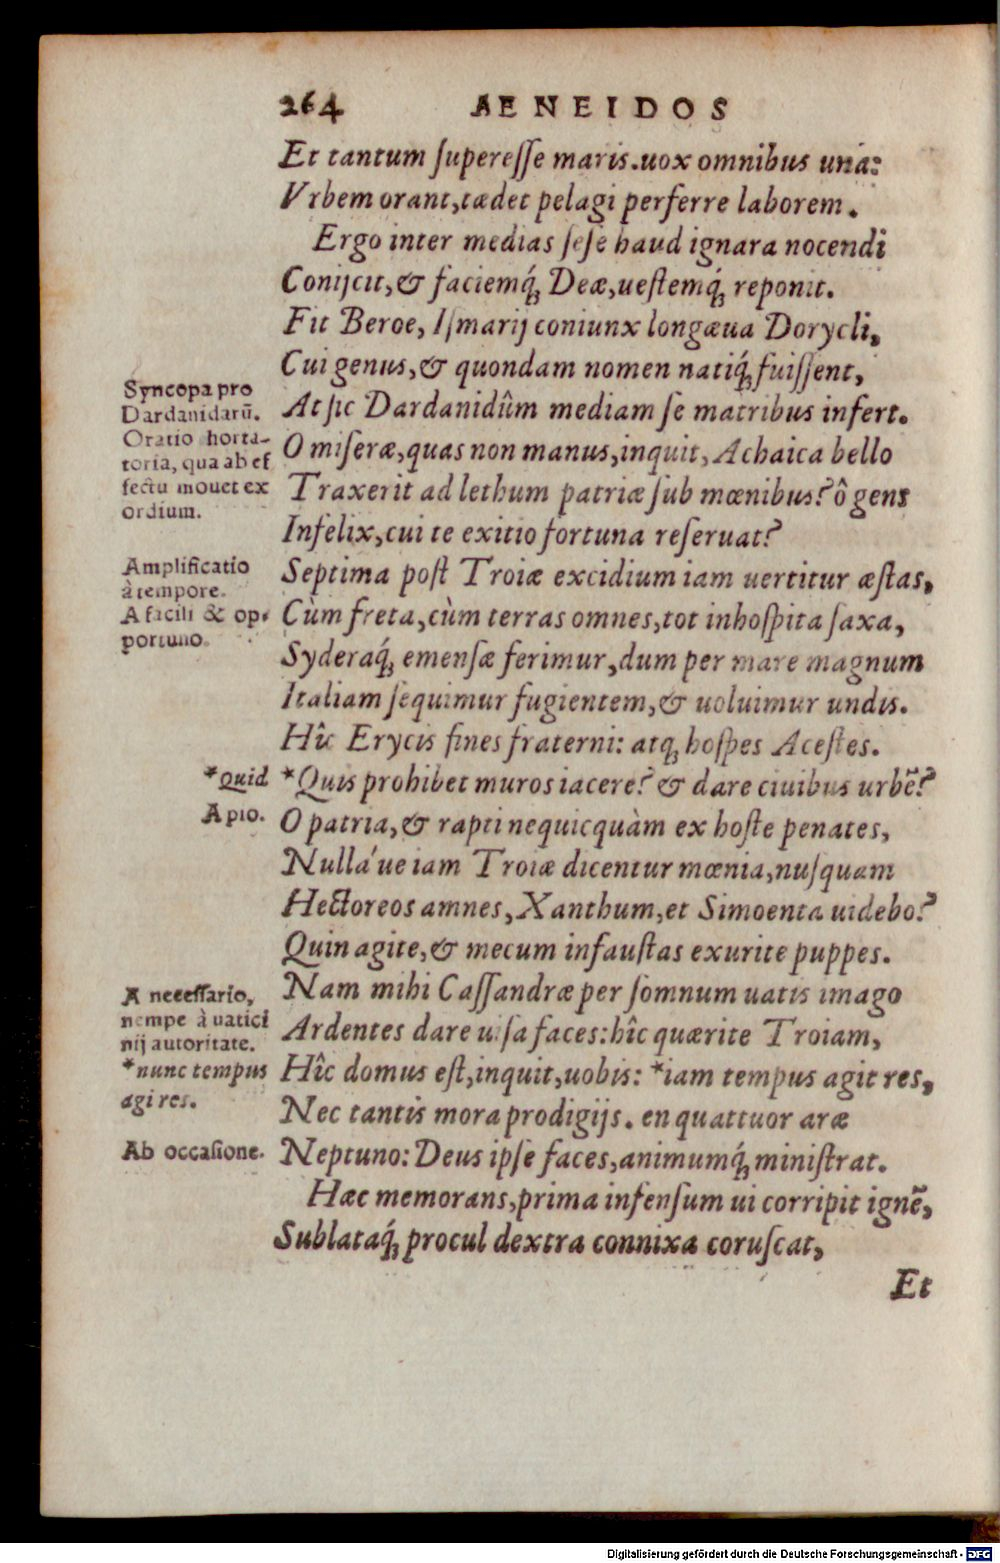 264 AENEIDOS
Et tantum ſupereſſe maris.uox omnibus unà:
Vrbem orant,tædet pelagi perferre laborem.
Ergo inter medias ſeſe haud ignara nocendi
Conijcit,& faciemq́ꝫ Deæ,ueſtemq́ꝫ reponit.
Fit Beroe, Iſmarij coniunx longæua Dorycli,
Cui genus,& quondam nomen natiq́ꝫ fuiſſent,
Syncopa pro
Dardanidarū.
At ſic Dardanidûm mediam ſe matribus infert.
Oratio horta-
toria, qua ab ef
fectu mouet ex
ordium.
O miſeræ,quas non manus,inquit,Achaica bello
Traxerit ad lethum patriæ ſub mœnibus? ô gens
Infelix,cui te exitio fortuna reſeruat?
Amplificatio
à tempore.
Septima poſt Troiæ excidium iam uertitur æſtas,
A facili & op-
portuno.
Cùm freta,cùm terras omnes,tot inhoſpita ſaxa,
Syderaq́ꝫ emenſæ ferimur,dum per mare magnum
Italiam ſequimur fugientem,& uoluimur undis.
Hîc Erycis fines fraterni: atqꝫ hoſpes Aceſtes.
*quid
*Quis prohibet muros iacere? & dare ciuibus urbē?
A pio.
O patria,& rapti nequicquàm ex hoſte penates,
Nulla´ue iam Troiæ dicentur mœnia,nuſquam
Hectoreos amnes,Xanthum,et Simoenta uidebo?
Quin agite,& mecum infauſtas exurite puppes.
A neceſſario,
nempe à uatici
nij autoritate.
Nam mihi Caſſandræ per ſomnum uatis imago
Ardentes dare uiſa faces:hîc quærite Troiam,
*nunc tempus
agi res.
Hîc domus eſt,inquit,uobis: *iam tempus agit res,
Nec tantis mora prodigijs. en quattuor aræ
Ab occaſione.
Neptuno:Deus ipſe faces,animumq́ꝫ miniſtrat.
Hæc memorans,prima infenſum ui corripit ignē,
Sublataq́ꝫ procul dextra connixa coruſcat,
Et
Digitalisierung gefördert durch die Deutsche Forschungsgemeinschaft - DFG